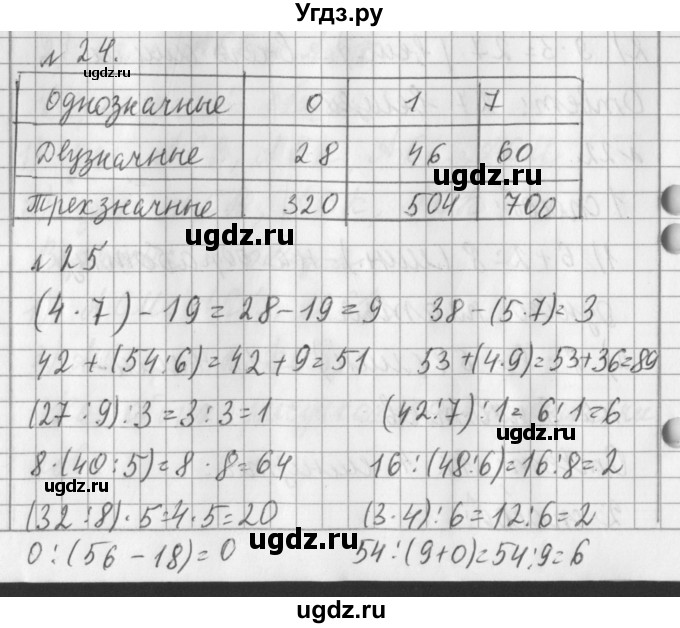 Угдз.ру
№ 24.
ugdz.ru
Однозначные 0 1 7
Двузначные 28 46 60
ugdz.ru
Трехзначные 320 504 700
ugdz.ru
№ 25
(4 · 7) - 19 = 28 - 19 = 9 38 - (5 · 7) = 3
42 + (54 : 6) = 42 + 9 = 51 53 + (4 · 9) = 53 + 36 = 89
(27 : 9) : 3 = 3 : 3 = 1 (42 : 7) : 1 = 6 : 1 = 6
ugdz.ru
8 · (40 : 5) = 8 · 8 = 64 16 : (48 : 6) = 16 : 8 = 2
ugdz.ru
(32 : 8) · 5 = 4 · 5 = 20 (3 · 4) : 6 = 12 : 6 = 2
ugdz.ru
0 : (56 - 18) = 0 54 : (9 + 0) = 54 : 9 = 6
ugdz.ru